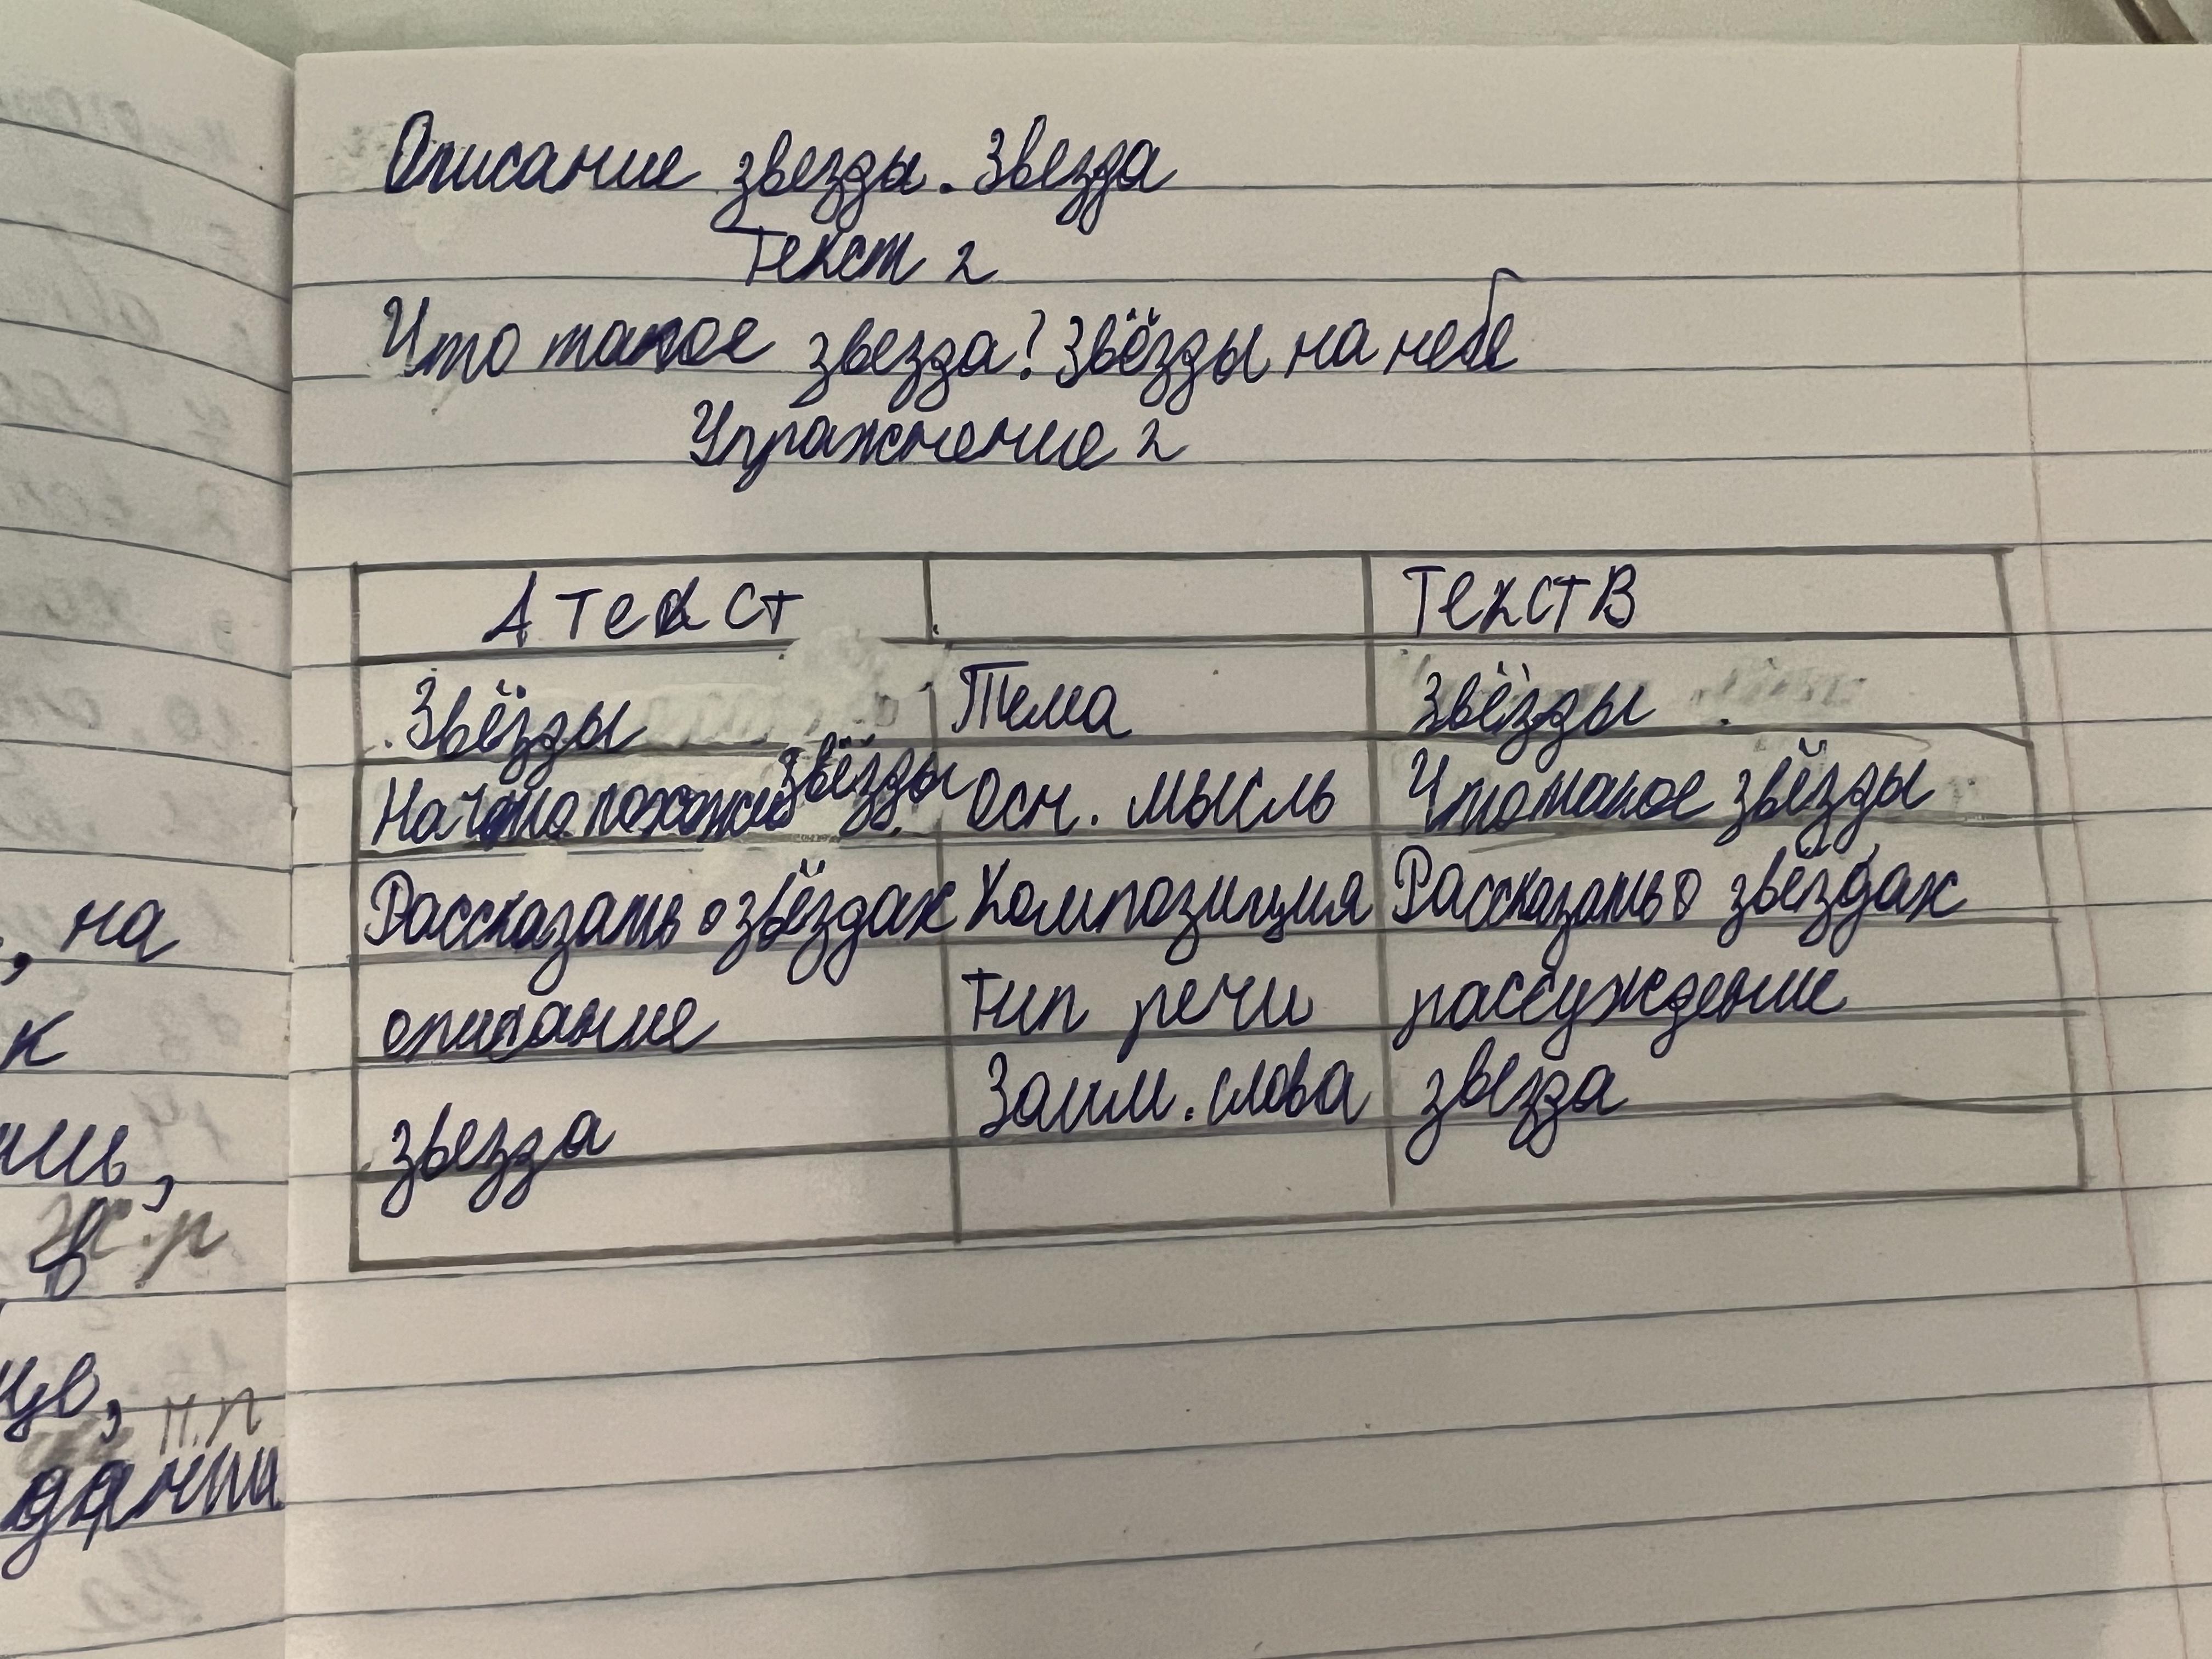 Описание звезды. Звезда
Текст 2
Что такое звезда? Звёзды на небе
Упражнение 2
А текст Текст В
Звёзды Тема Звёзды
На что похожи звёзды Осн. мысль Что такое звёзды
Рассказать о звёздах Композиция Рассказать о звёздах
описание Тип речи рассуждение
звезда Заим. слова звезда
, на
к
ж.р
в
н.п